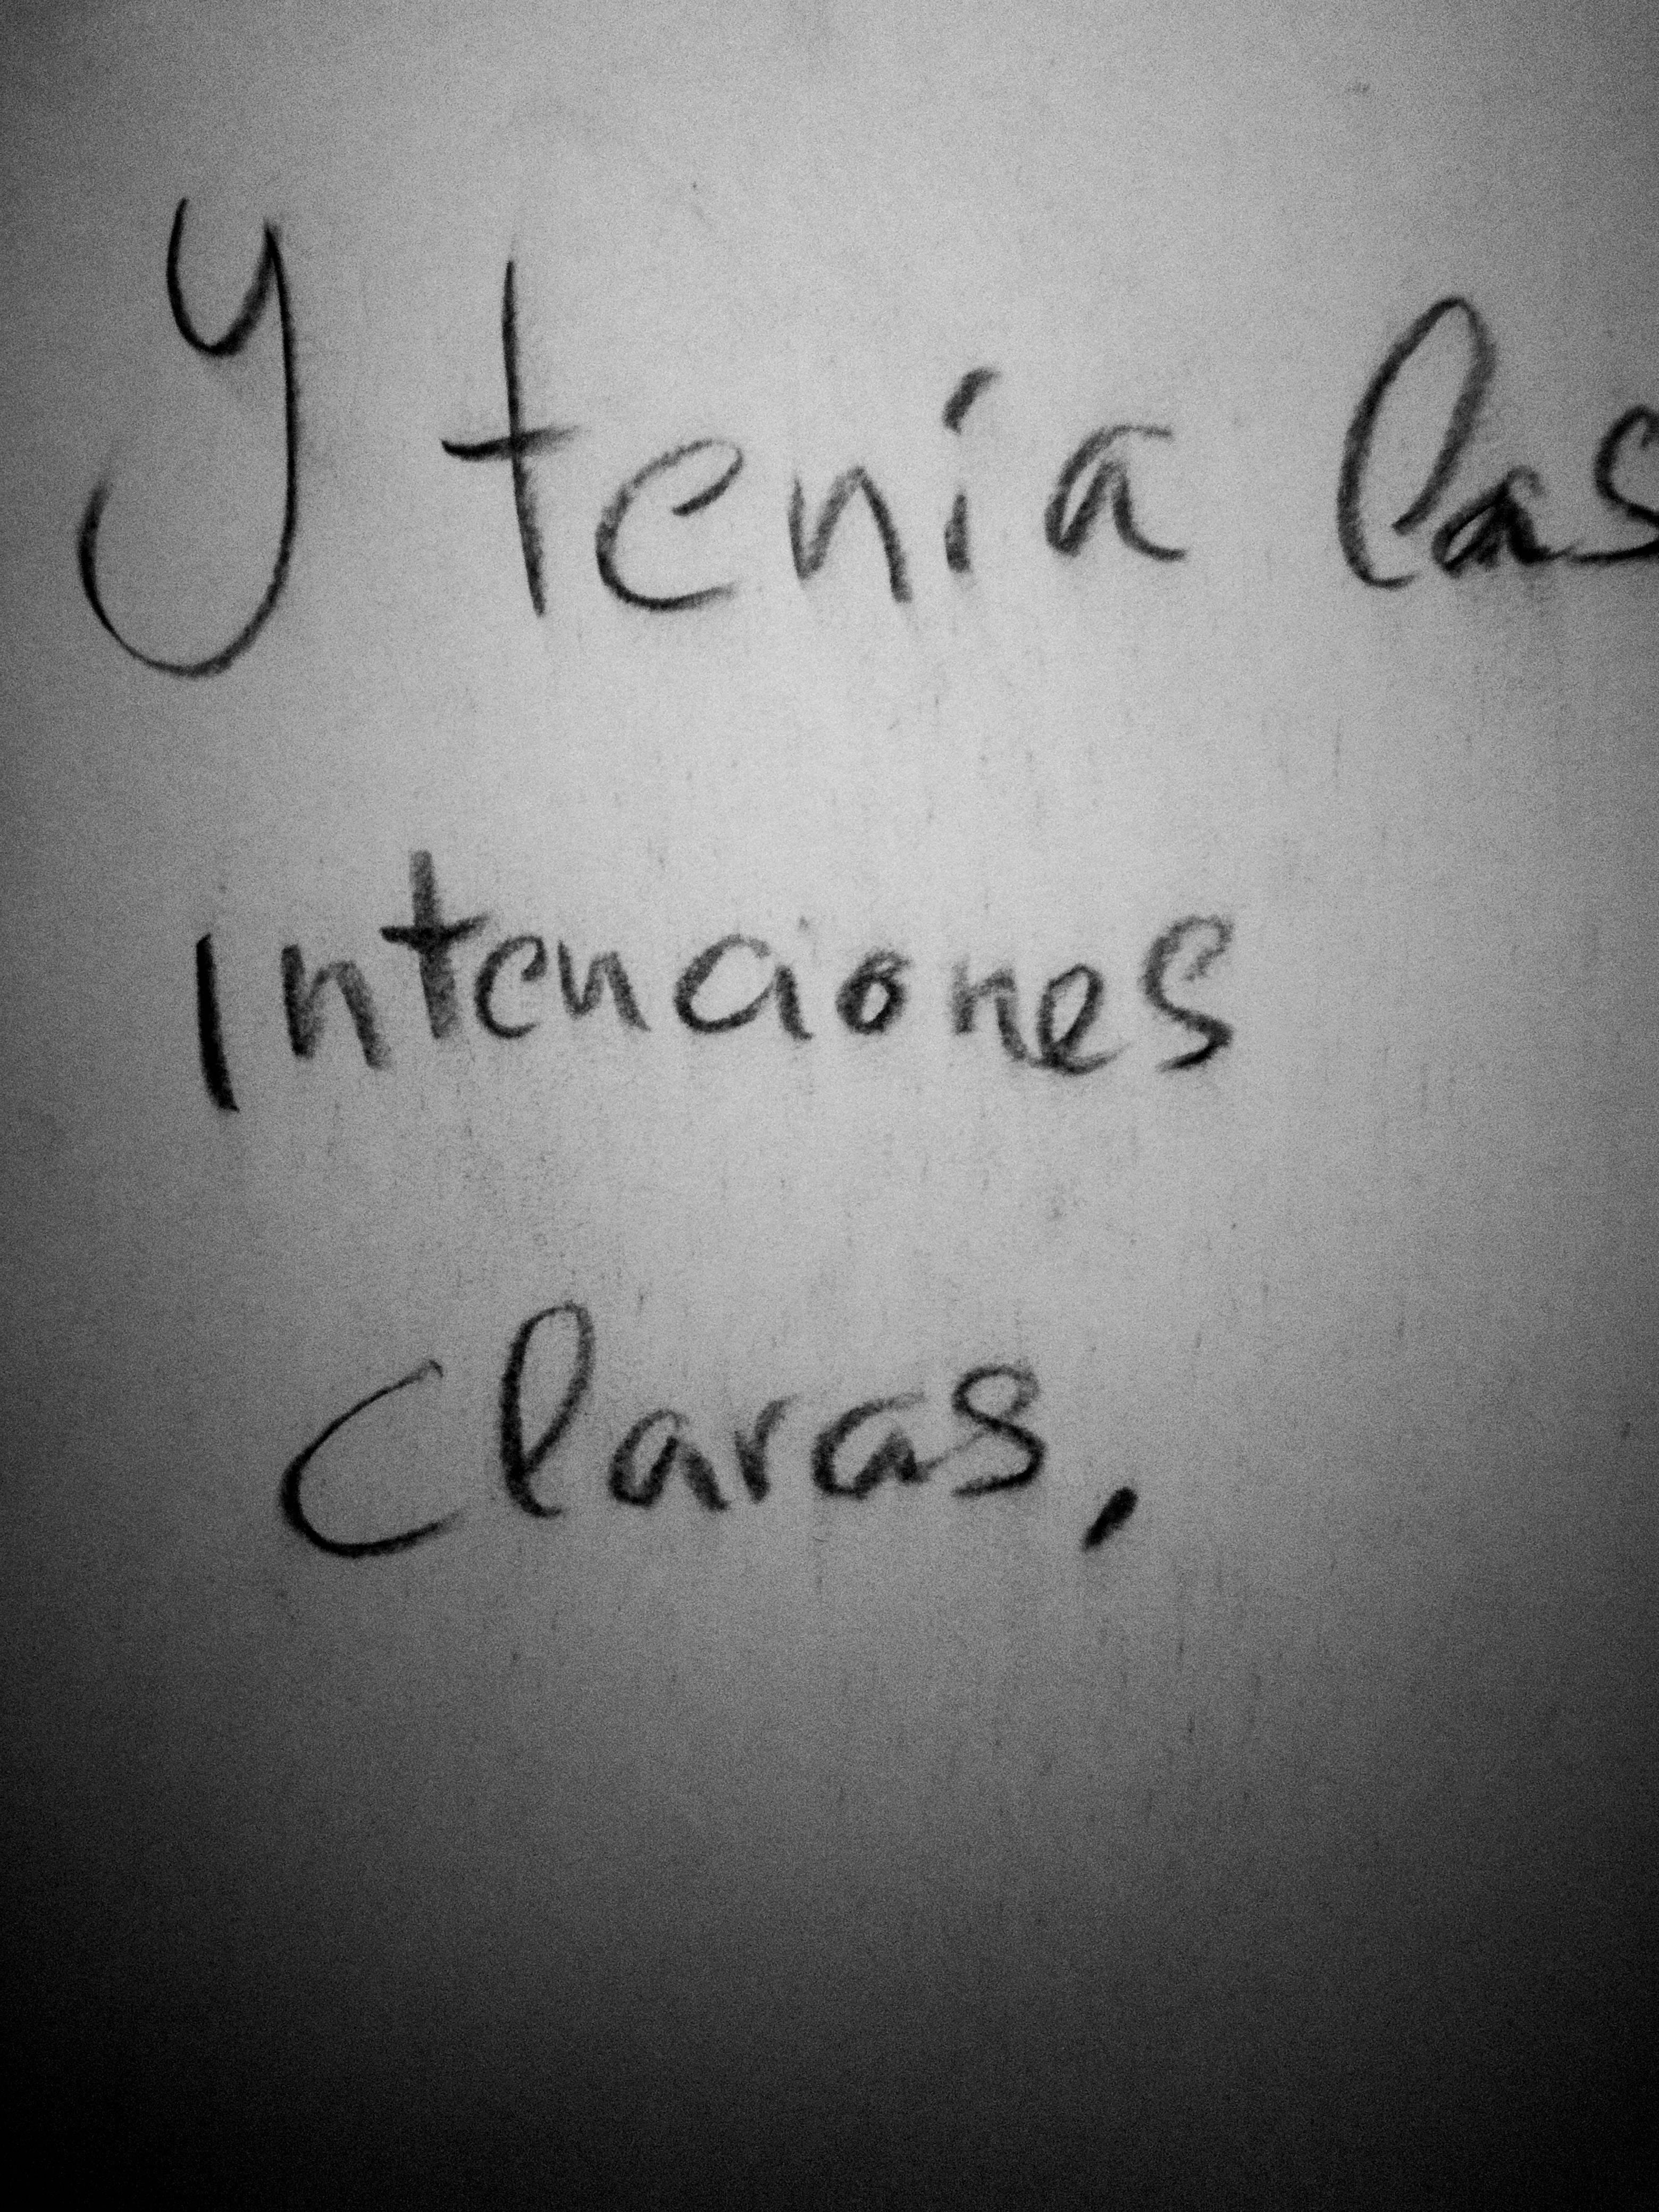 Y tenía las
intenciones
claras,